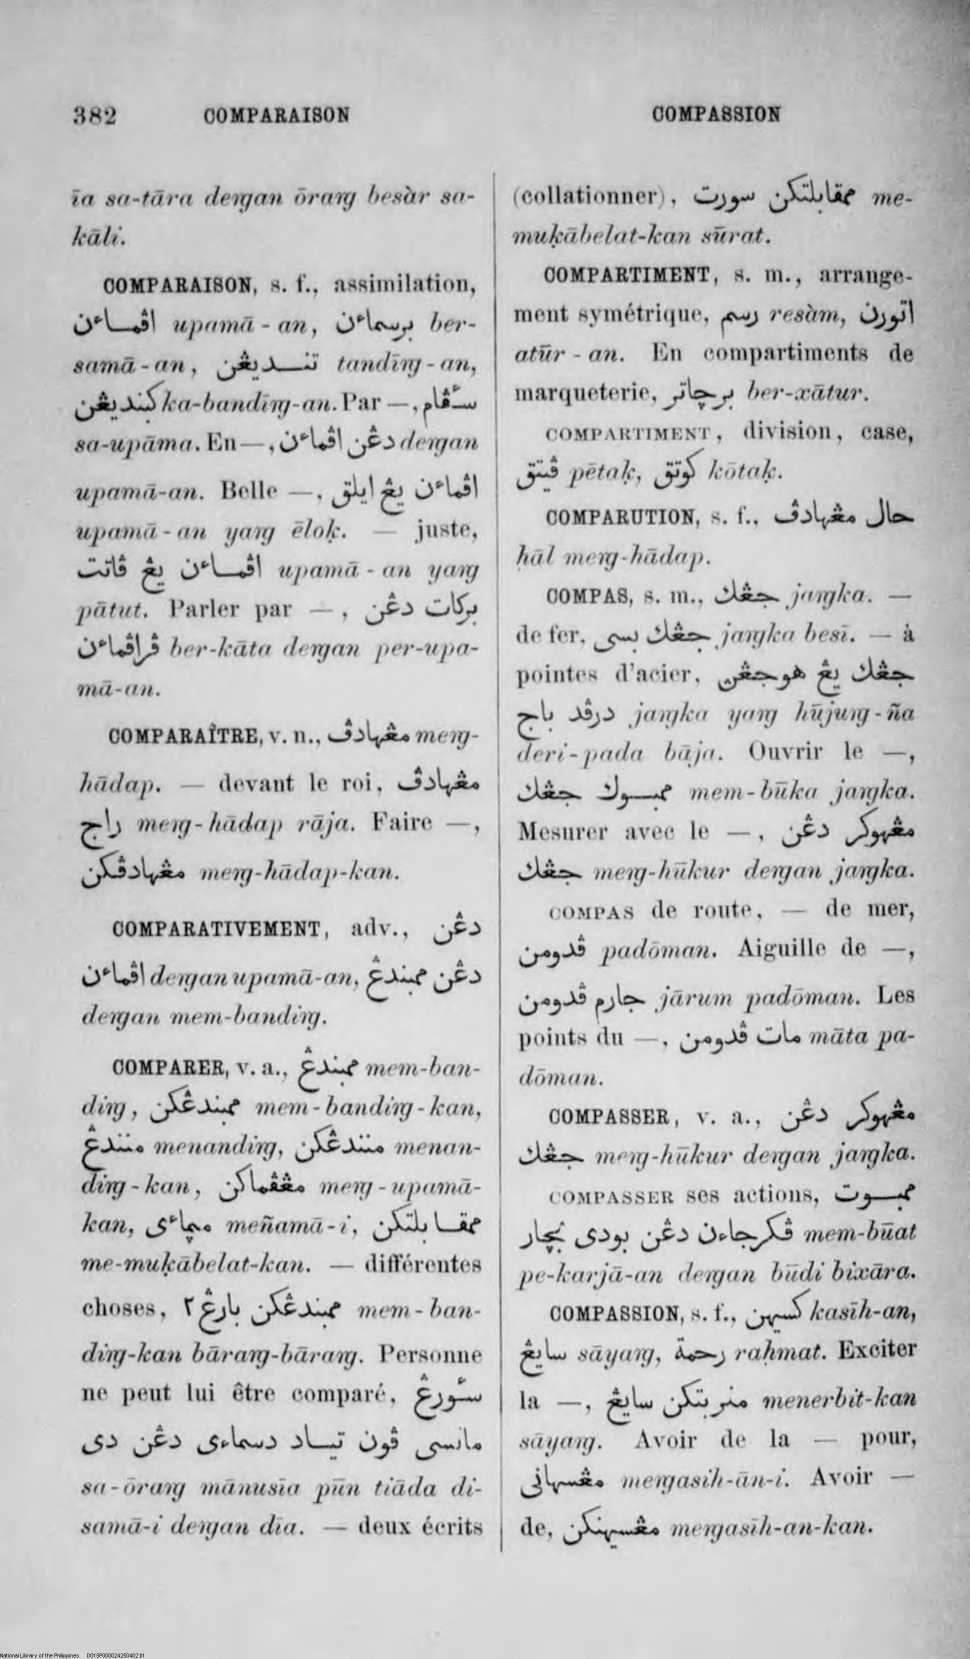 382 COMPARAISON COMPASSION
īa sa-tāra deṅgan ōraṅg besàr sa-
kāli.
COMPARAISON, s. f., assimilation,
اڤماءن upamā-an, برسماءن ber-
samā-an, تنديڠن tandīṅg-an,
کبنديڠن ka-bandīṅg-an. Par —, سأڤام
sa-upāma. En —, دڠن اڤماءن deṅgan
upamā-an. Belle —, اڤماءن يڠ ايلق
upamā-an yaṅg ēloḳ. — juste,
اڤماءن يڠ ڤاتت upamā-an yaṅg
pātut. Parler par —, برکات دڠن
ڤراڤماءن ber-kāta deṅgan per-upa-
mā-an.
COMPARAÎTRE, v. n., مڠهادڤ meṅg-
hādap. — devant le roi, مڠهادڤ
راج meṅg-hādap rāja. Faire —,
مڠهادڤکن meṅg-hādap-kan.
COMPARATIVEMENT, adv., دڠن
اڤماءن deṅgan upamā-an, دڠن ممبندڠ
deṅgan mem-bandiṅg.
COMPARER, v. a., ممبندڠ mem-ban-
diṅg, ممبندڠکن mem-bandiṅg-kan,
مننندڠ menandiṅg, مننندڠکن menan-
diṅg-kan, مڠڤماکن meṅg-upamā-
kan, مپماءي meñamā-i, ممقابلتکن
me-muḳābelat-kan. — différentes
choses, ممبندڠکن بارڠ ٢ mem-ban-
diṅg-kan bāraṅg-bāraṅg. Personne
ne peut lui être comparé, سأورڠ
مانسي ڤون تياد دسماءي دڠن دي
sa-ōraṅg mānusīa pūn tiāda di-
samā-i deṅgan dīa. — deux écrits
(collationner), ممقابلتکن سورت me-
muḳābelat-kan sūrat.
COMPARTIMENT, s. m., arrange-
ment symétrique, رسم resàm, اتورن
atūr-an. En compartiments de
marqueterie, برچاتر ber-xātur.
COMPARTIMENT, division, case,
ڤيتق pētaḳ, کوتق kōtaḳ.
COMPARUTION, s. f., حال مڠهادڤ
ḥāl meṅg-hādap.
COMPAS, s. m., جڠك jaṅgka. —
de fer, جڠك بسي jaṅgka besī. — à
pointes d'acier, جڠك يڠ هوجڠن
درڤد باج jaṅgka yaṅg hūjuṅg-ña
deri-pada bāja. Ouvrir le —,
ممبوك جڠك mem-būka jaṅgka.
Mesurer avec le —, مڠهوکر دڠن
جڠك meṅg-hūkur deṅgan jaṅgka.
COMPAS de route, — de mer,
ڤدومن padōman. Aiguille de —,
جارم ڤدومن jārum padōman. Les
points du —, مات ڤدومن māta pa-
dōman.
COMPASSER, v. a., مڠهوکر دڠن
جڠك meṅg-hūkur deṅgan jaṅgka.
COMPASSER ses actions, ممبوت
ڤکرجاءن دڠن بودي بچار mem-būat
pe-karjā-an deṅgan būdi bixāra.
COMPASSION, s. f., کسيهن kasīh-an,
سايڠ sāyaṅg, رحمة raḥmat. Exciter
la —, منربتکن سايڠ menerbit-kan
sāyaṅg. Avoir de la — pour,
مڠسهاني meṅgasih-ān-i. Avoir —
de, مڠسيهنکن meṅgasīh-an-kan.
National Library of the Philippines